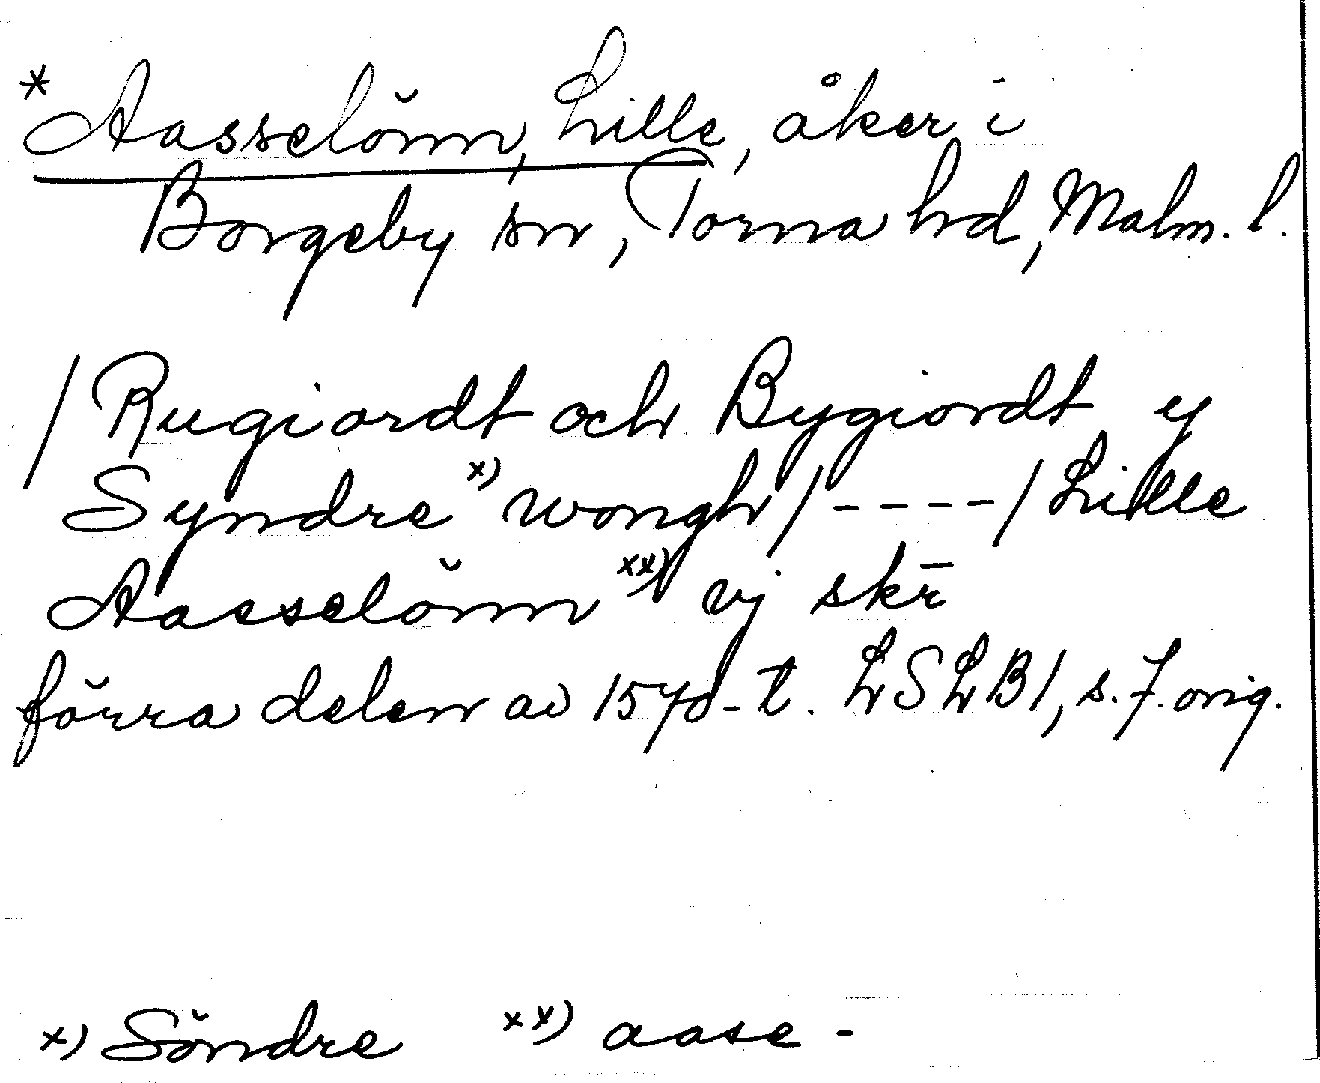 *Aasselönn, Lille, åker i
Borgeby sn, Torna hd, Malm. l.
/Rugiordt och Bygiordt y
Syndre x) wongh/----/Lille
Aasselönn xx) vj skr̄
förra delen av 1570-t. LSLB1, s. 7. orig.
x) Söndre xx) aase-